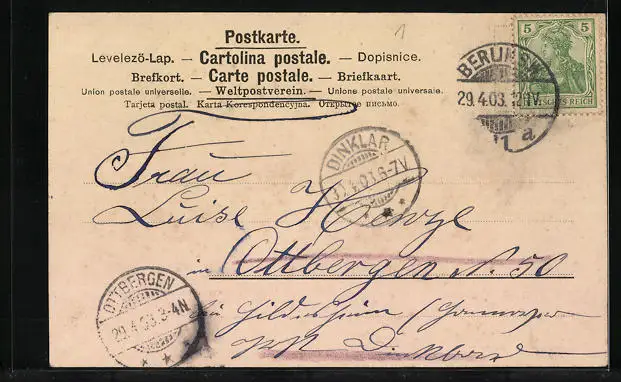 Postkarte.
Levelező-Lap. — Cartolina postale. — Dopisnice.
Brefkort. — Carte postale. — Briefkaart.
Union postale universelle. — Weltpostverein. — Unione postale universale.
Tarjeta postal. Karta Korespondencyjna. Открытое письмо.
1
5 5
DEUTSCHES REICH
BERLIN S.W.
29.4.03.
11 a
DINKLAR
4.03.6-7V
Frau
Luise Henze
in Ottbergen N. 50
bei Hildesheim (Hannover
OTTBERGEN
29.4.03.3-4N